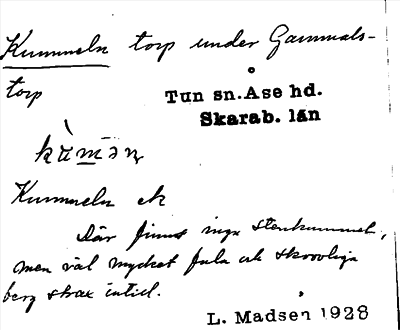 Kummeln torp under Gammals-
torp
Tun sn. Åse hd.
Skarab. län
Kummeln ek
Där finns inga stenkummel,
men väl mycket fula och skrovliga
berg strax intill.
L. Madsen 1928